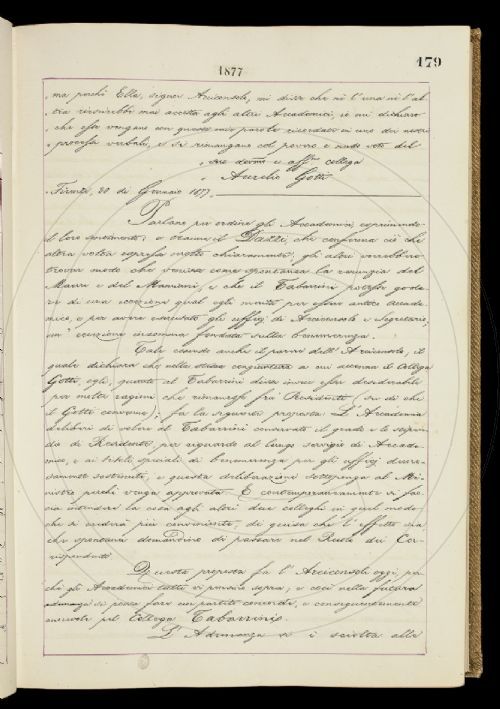 179
1877
„ ma perchè Ella, signor Arciconsolo, mi disse che nè l'una nè l'al-
„ tra riuscirebbe mai accetta agli altri Accademici, io mi dichiaro
„ che esse vengano con queste mie parole ricordate in uno dei nostri
„ processi verbali, e si rimangano col povero e nudo voto del
„ suo devmo e affmo collega
„ Aurelio Gotti
„ Firenze, 20 di Gennaio 1877.
Parlano per ordine gli Accademici esprimendo
il loro sentimento; e tranne il Dazzi, che conferma ciò che
altra volta espresse molto chiaramente, gli altri vorrebbero
trovar modo che venisse come spontanea la rinunzia del
Mauri e del Mamiani, e che il Tabarrini potesse gode-
re di una eccezione qual egli merita per esser antico accade-
mico, e per avere esercitato gli uffizj di Arciconsolo e Segretario,
un' eccezione insomma fondata sulla benemerenza.
Tale essendo anche il parere dell'Arciconsolo, il
quale dichiara che nella stessa congiuntura a cui accenna il Collega
Gotti, egli, quanto al Tabarrini disse invece esser desiderabile
per molte ragioni che rimanesse fra Residenti (su di che
il Gotti conviene); fa la seguente proposta. L'Accademia
deliberi di volere al Tabarrini conservato il grado e lo stipen-
dio di Residente per riguardo al lungo servigio di Accade-
mico, e ai titoli speciali di benemerenza per gli uffizj
sostenuti, e questa deliberazione sottoponga al Mi-
nistro perchè venga approvata. E contemporaneamente si fac-
cia intendere la cosa agli altri due colleghi in quel modo
che si crederà più conveniente, di guisa che l'effetto sia
che spontanei domandino di passare nel Ruolo dei Cor-
rispondenti.
Questa proposta fa l'Arciconsolo oggi, per-
chè gli Accademici tutti vi pensino sopra, e così nella futura
adunanza si possa fare un partito concorde, e conseguentemente
onorevole pel Collega Tabarrini.
L'Adunanza si è sciolta alle